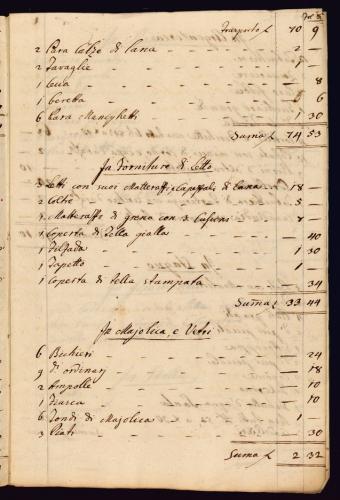 Trasporto £ 70 9
2 Para Calze di lana 2 —
2 Tovaglie
1 8
1 Beretta 6
6 Para Maneghetti 1 30
Suma £ 74 53
Forniture di Letto
Letti con suoi Matterassi, e Capezali di Lana 18 —
2 Coltre 5
Matterasso di grena con 3 Cussini
1 Coperta di Tella gialla — 40
1 Felzada 1 30
1 Tapetto 1 —
1 Coperta di tella stampata — 34
Suma £ 33 44
Majolica, e Vetri
6 Bichieri — 24
9 d'ordenarj — 18
2 Ampolle — 10
1 Fiasca — 10
6 Tondi di Majolica 1 —
3 Piati — 30
Suma £ 2 32